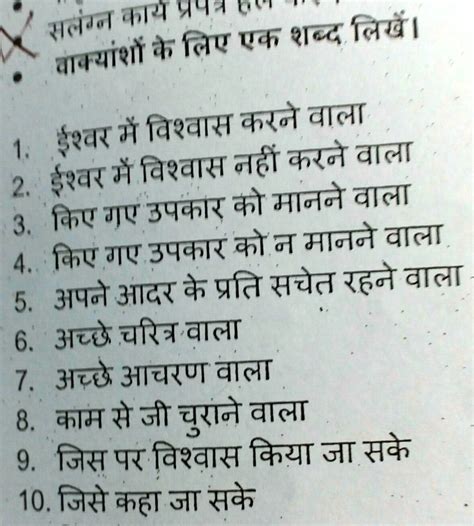 सलंग्न कार्य प्रपत्र हल
वाक्यांशों के लिए एक शब्द लिखें।
1. ईश्वर में विश्वास करने वाला
2. ईश्वर में विश्वास नहीं करने वाला
3. किए गए उपकार को मानने वाला
4. किए गए उपकार को न मानने वाला
5. अपने आदर के प्रति सचेत रहने वाला
6. अच्छे चरित्र वाला
7. अच्छे आचरण वाला
8. काम से जी चुराने वाला
9. जिस पर विश्वास किया जा सके
10. जिसे कहा जा सके